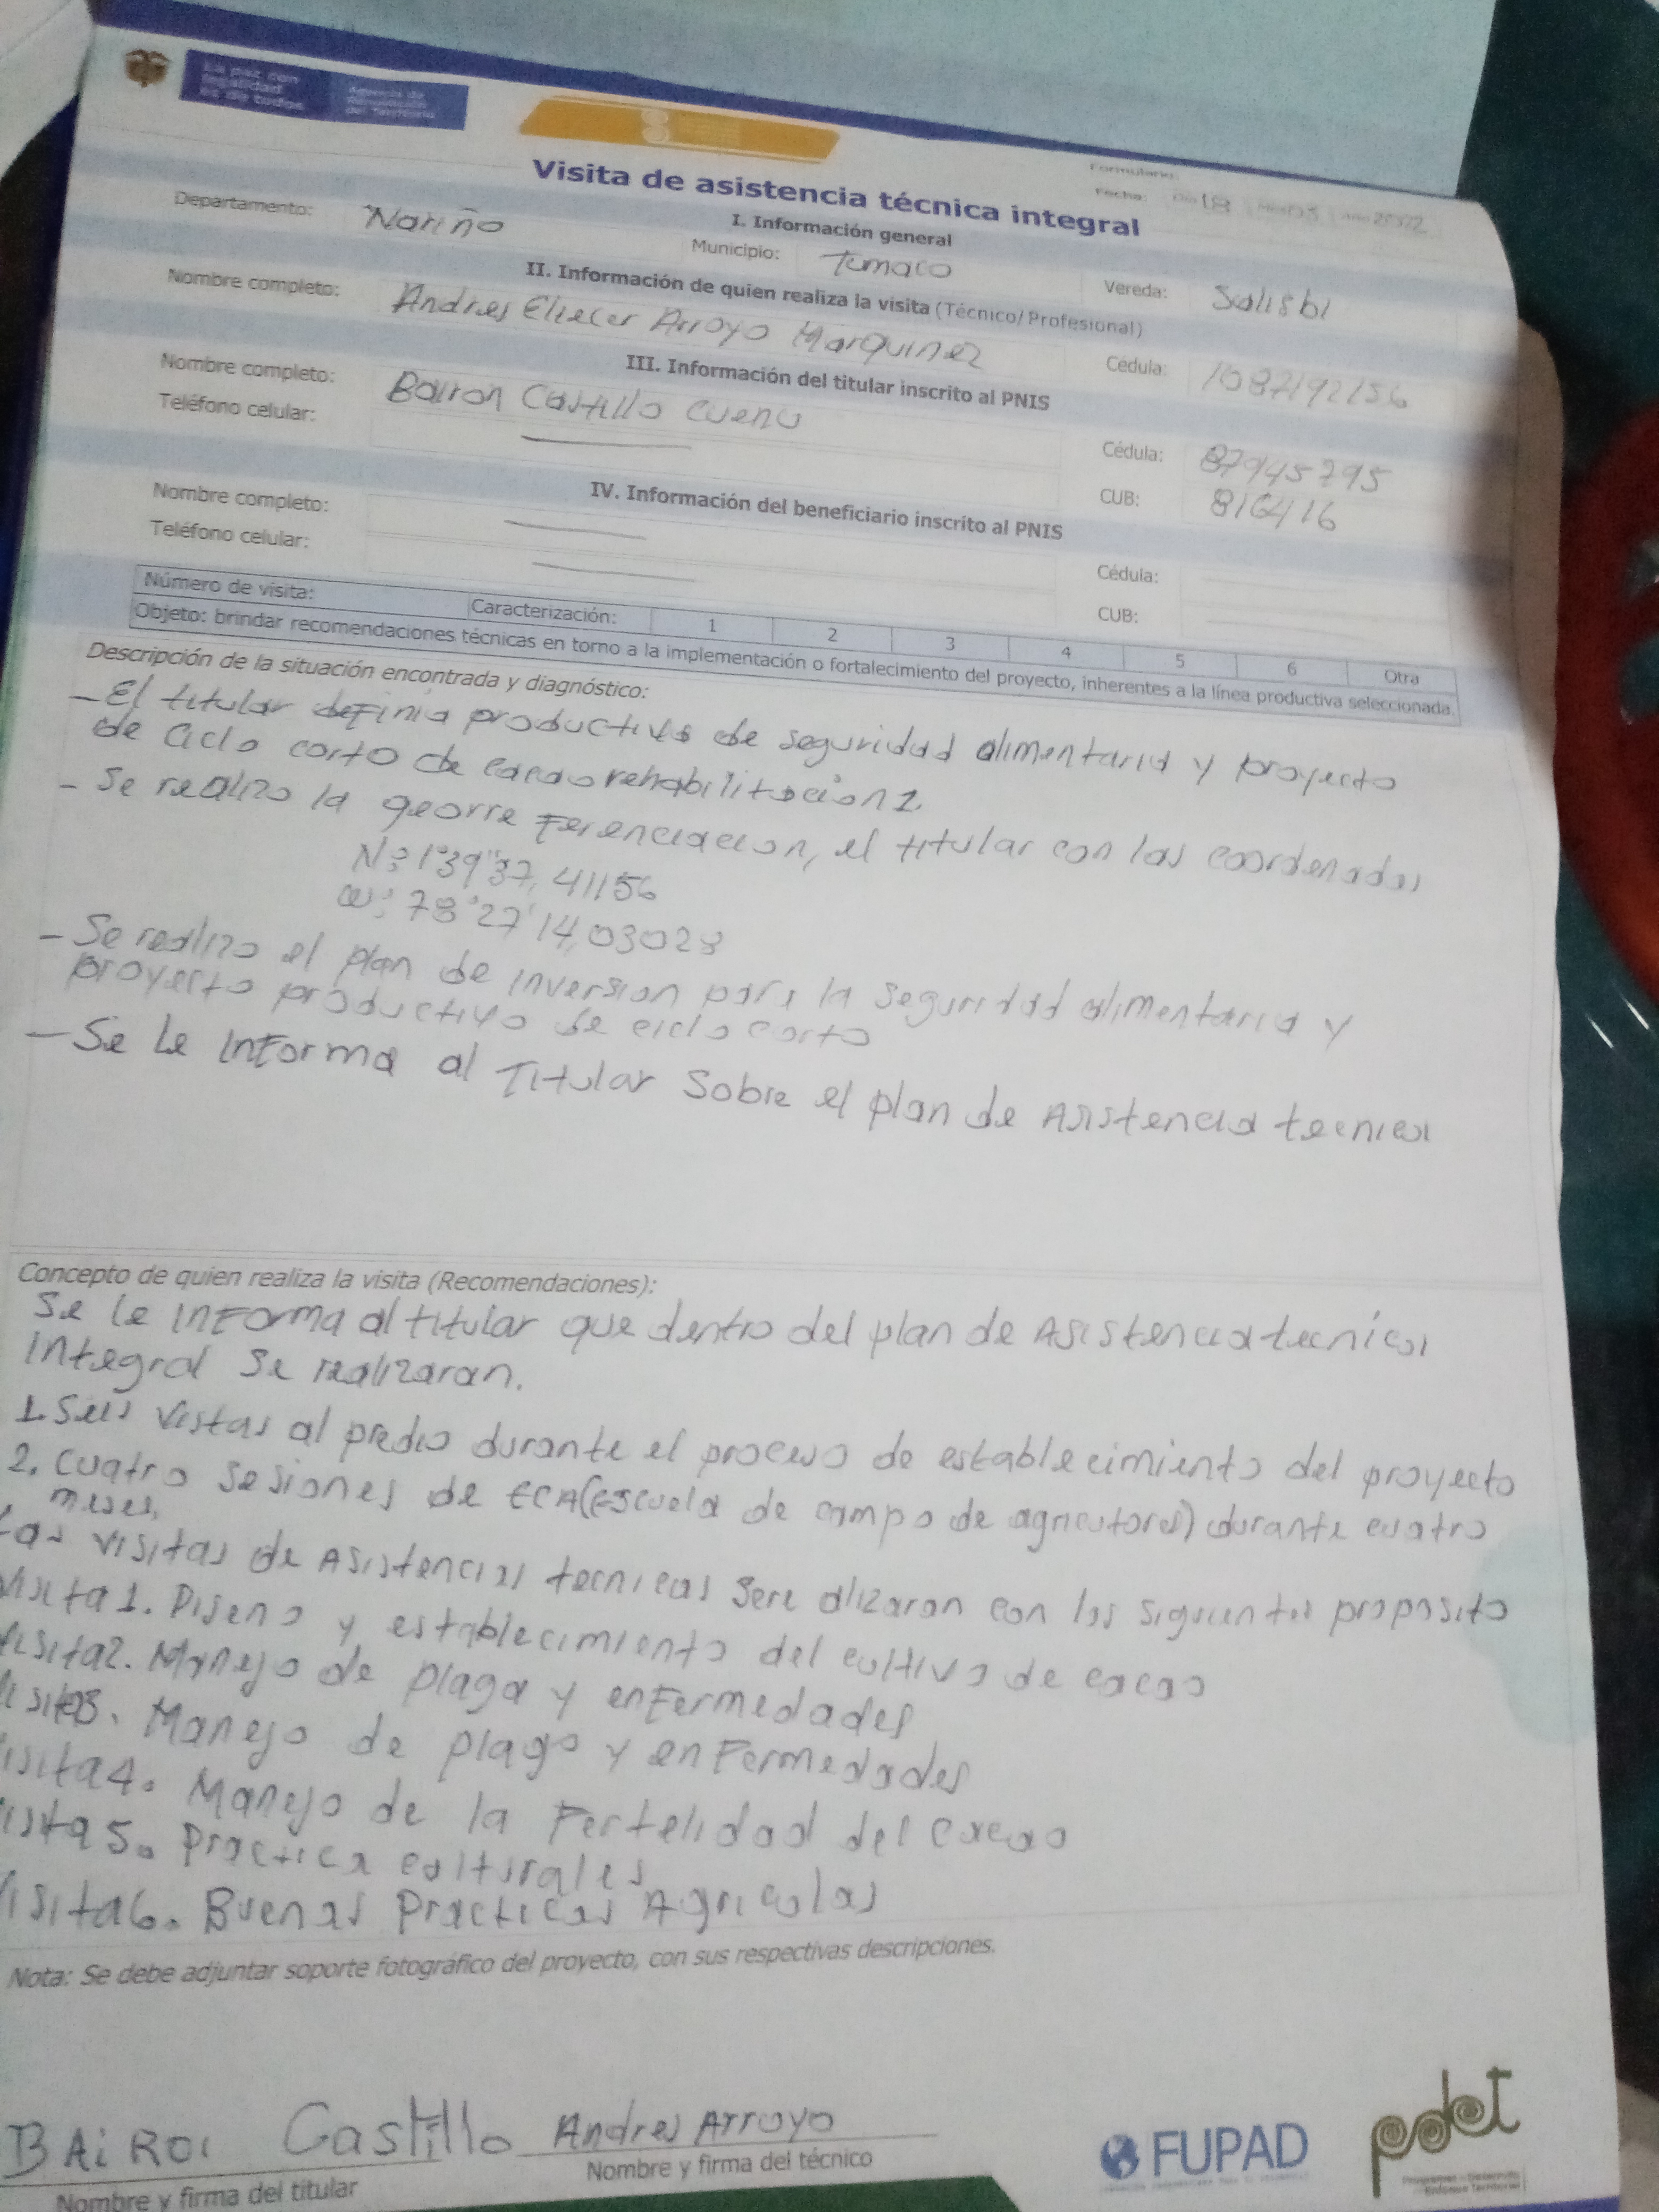 La paz con
legalidad
es de todos
Agencia de
Renovación
del Territorio
Formulario:
Visita de asistencia técnica integral
Fecha: Día 18 Mes 03 Año 2022
I. Información general
Departamento: Nariño Municipio: Tumaco Vereda: Salisbi
II. Información de quien realiza la visita (Técnico/Profesional)
Nombre completo: Andres Eliecer Arroyo Marquinez Cédula: 1087192156
III. Información del titular inscrito al PNIS
Nombre completo: Bairon Castillo Cuenu Cédula: 87945795
Teléfono celular: CUB: 816416
IV. Información del beneficiario inscrito al PNIS
Nombre completo: Cédula:
Teléfono celular: CUB:
Número de visita: Caracterización: 1 2 3 4 5 6 Otra
Objeto: brindar recomendaciones técnicas en torno a la implementación o fortalecimiento del proyecto, inherentes a la línea productiva seleccionada.
Descripción de la situación encontrada y diagnóstico:
- El titular definia productivos de seguridad alimentaria y proyecto
de ciclo corto de cacao rehabilitacion 1.
- Se realizo la georreferenciacion, el titular con las coordenadas
N: 1°39'37,41156
W: 78°27'14,03028
- Se realizo el plan de inversion para la seguridad alimentaria y
proyecto productivo de ciclo corto
- Se le informa al Titular sobre el plan de Asistencia tecnica
Concepto de quien realiza la visita (Recomendaciones):
Se le informa al titular que dentro del plan de Asistencia tecnica
integral se realizaran.
1. Seis vistas al predio durante el proceso de establecimiento del proyecto
2. Cuatro sesiones de ECA (Escuela de campo de agricutores) durante cuatro
meses.
Las visitas de Asistencias tecnicas sere alizaran con los siguientes proposito
Visita 1. Diseno y establecimiento del cultivo de cacao
Visita 2. Manejo de plaga y enfermedades
Visita 3. Manejo de plaga y enfermedades
Visita 4. Manejo de la Fertelidad del cacao
Visita 5. Practica culturales
Visita 6. Buenas Practicas Agricolas
Nota: Se debe adjuntar soporte fotográfico del proyecto, con sus respectivas descripciones.
BAiROI Castillo
Nombre y firma del titular
Andres Arroyo
Nombre y firma del técnico
FUPAD
pdet